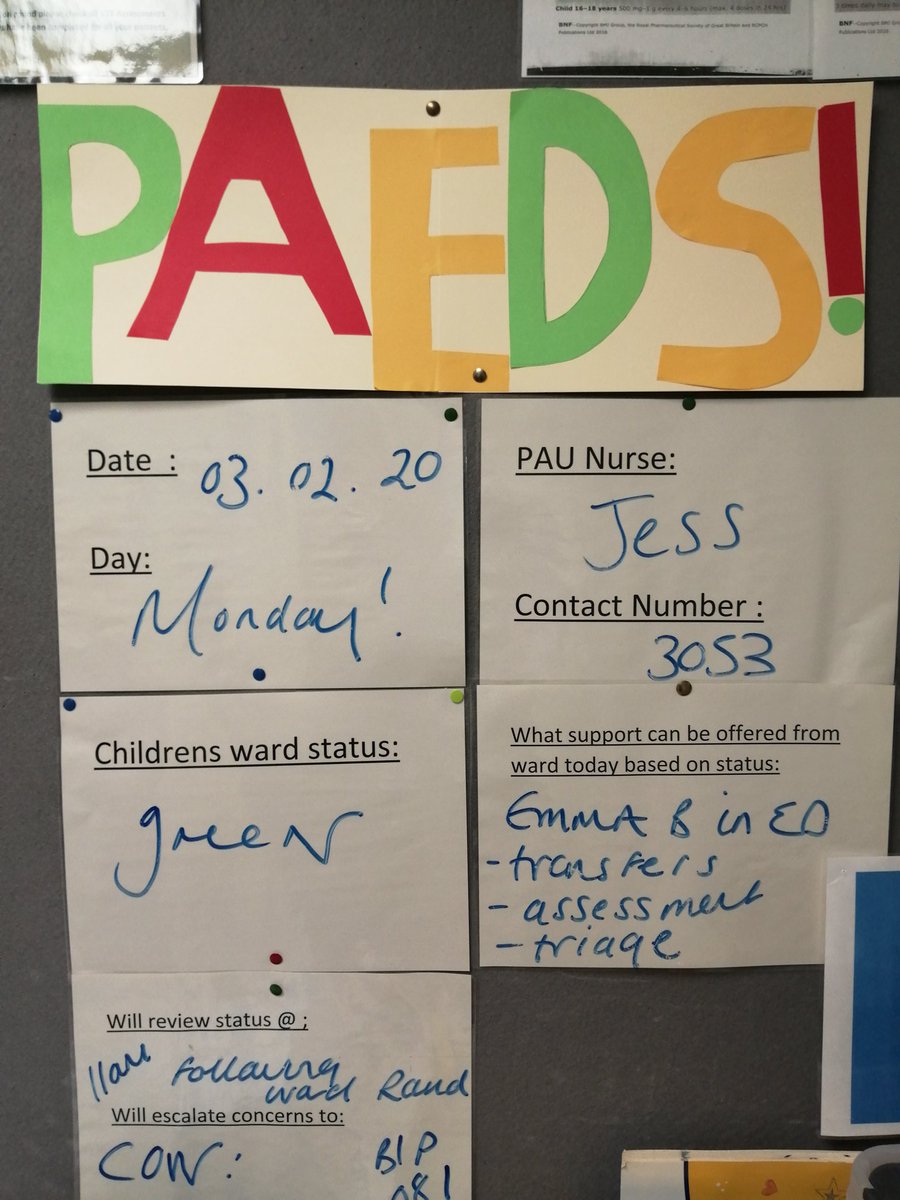 Child 16–18 years 500 mg–1 g every 4–6 hours (max. 4 doses in 24 hrs)
BNF–Copyright BMJ Group, the Royal Pharmaceutical Society of Great Britain and RCPCH
Publications Ltd 2016
BNF–Copyright BMJ Gro
Publications Ltd 2016
PAEDS!
Date :
03.02.20
Day:
Monday!
PAU Nurse:
Jess
Contact Number :
3053
Childrens ward status:
green
What support can be offered from
ward today based on status:
Emma B in ED
- transfers
- assessment
- triage
Will review status @ ;
11am Following
ward Round
Will escalate concerns to:
COW: BIP
081